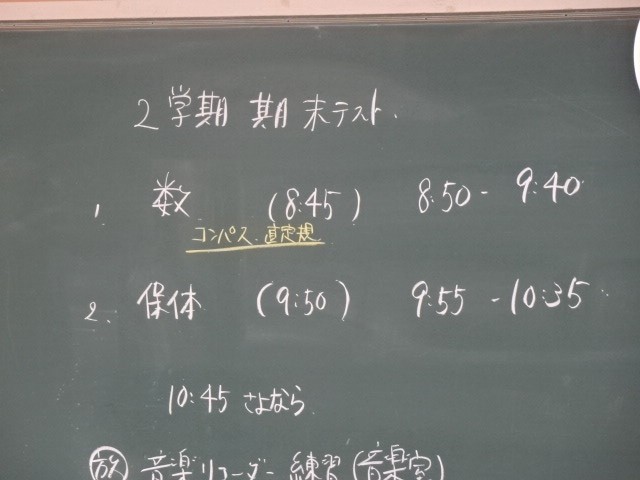 2学期 期末テスト.
1. 数 (8:45) 8:50 - 9:40
コンパス. 直定規
2. 保体 (9:50) 9:55 - 10:35
10:45 さよなら
放 音楽リコーダー練習(音楽室)